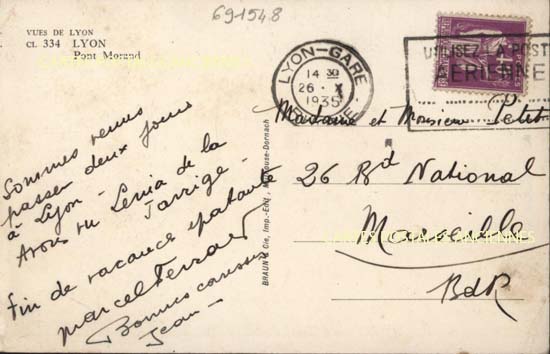 69-1548
VUES DE LYON
CL. 334 LYON
Pont Morand
LYON-GARE
14 30
26 X
1935
UTILISEZ LA POSTE
AERIENNE
Sommes venus
passer deux jours
à Lyon -
Avons vu de la
Fin de vacance épatante
Marcel
Bonnes caresses
Jean -
BRAUN & Cie, Imp.-Édit., Mulhouse-Dornach
Madame et Monsieur Petit
26 Bd National
Marseille
BdR
CARTES POSTALES ANCIENNES